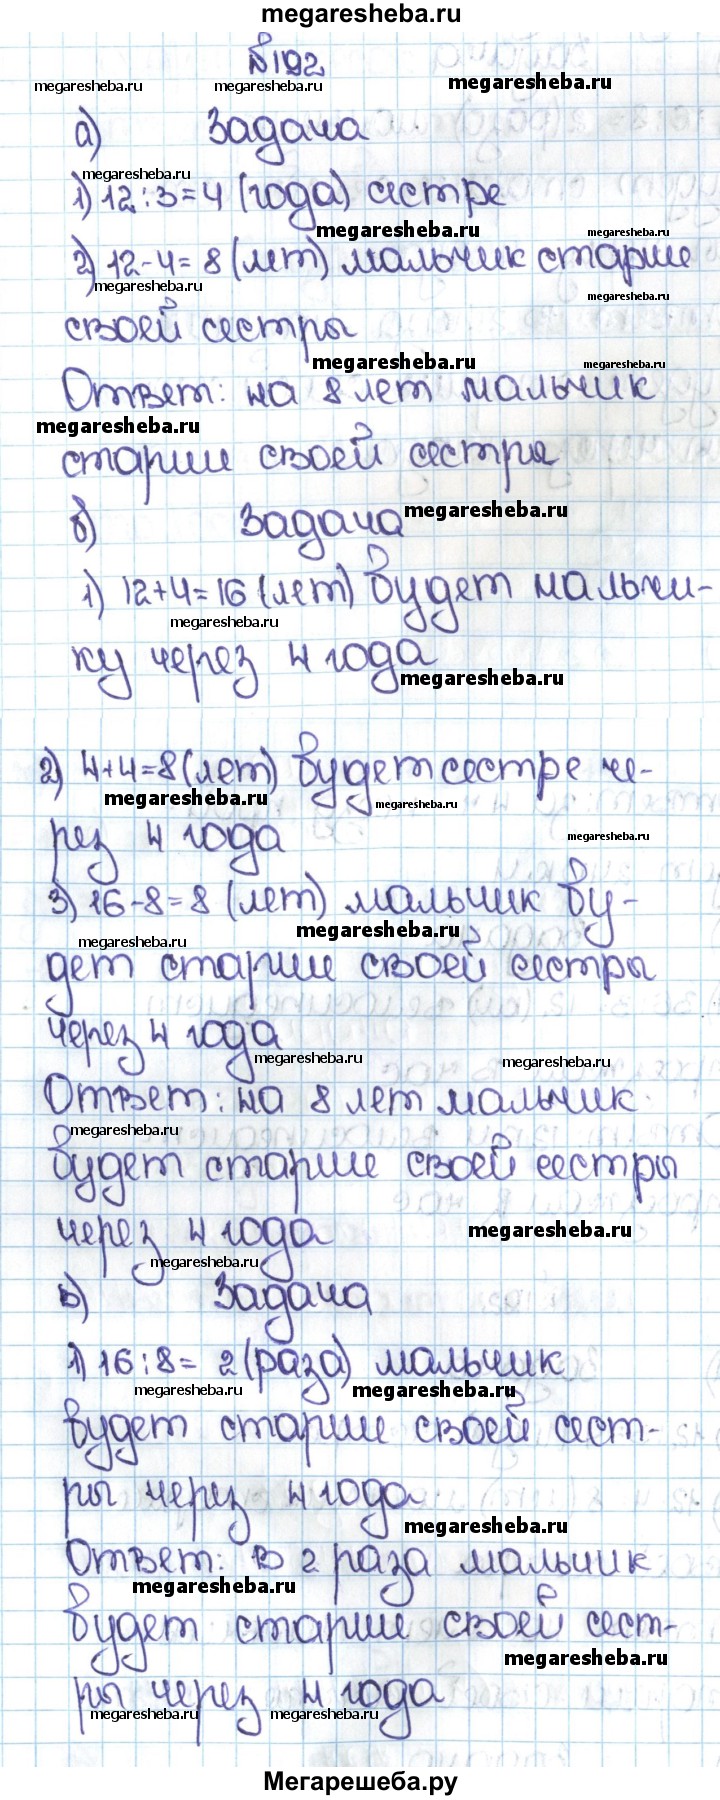 megaresheba.ru
№192
megaresheba.ru megaresheba.ru megaresheba.ru
а) Задача
megaresheba.ru
1) 12:3=4 (года) сестре
megaresheba.ru megaresheba.ru
2) 12-4=8 (лет) мальчик старше
megaresheba.ru megaresheba.ru
своей сестры
megaresheba.ru megaresheba.ru
Ответ: на 8 лет мальчик
megaresheba.ru
старше своей сестры
б) Задача megaresheba.ru
1) 12+4=16 (лет) будет мальчи-
megaresheba.ru
ку через 4 года
megaresheba.ru
2) 4+4=8 (лет) будет сестре че-
megaresheba.ru megaresheba.ru
рез 4 года megaresheba.ru
3) 16-8=8 (лет) мальчик бу-
megaresheba.ru megaresheba.ru
дет старше своей сестры
через 4 года
megaresheba.ru megaresheba.ru
Ответ: на 8 лет мальчик
megaresheba.ru
будет старше своей сестры
через 4 года megaresheba.ru
megaresheba.ru
в) Задача
1) 16:8= 2 (раза) мальчик
megaresheba.ru megaresheba.ru
будет старше своей сест-
ры через 4 года
megaresheba.ru
Ответ: в 2 раза мальчик
megaresheba.ru
будет старше своей сест-
megaresheba.ru
ры через 4 года
megaresheba.ru megaresheba.ru
Мегарешеба.ру